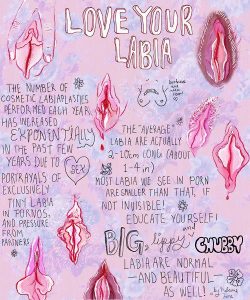 LOVE YOUR
LABIA
THE NUMBER OF
COSMETIC LABIAPLASTIES
PERFORMED EACH YEAR
HAS INCREASED
EXPONENTIALLY
IN THE PAST FEW
YEARS DUE TO
SEX
PORTRAYALS OF
EXCLUSIVELY
TINY LABIA
IN PORNOS,
AND PRESSURE
FROM
PARTNERS
THE "AVERAGE"
LABIA ARE ACTUALLY
2-10cm LONG (ABOUT
1-4 in)
MOST LABIA WE SEE IN PORN
ARE SMALLER THAN THAT, IF
NOT INVISIBLE!
EDUCATE YOURSELF!
BIG, lippy, and
CHUBBY
LABIA ARE NORMAL
—AND BEAUTIFUL—
AS WELL!